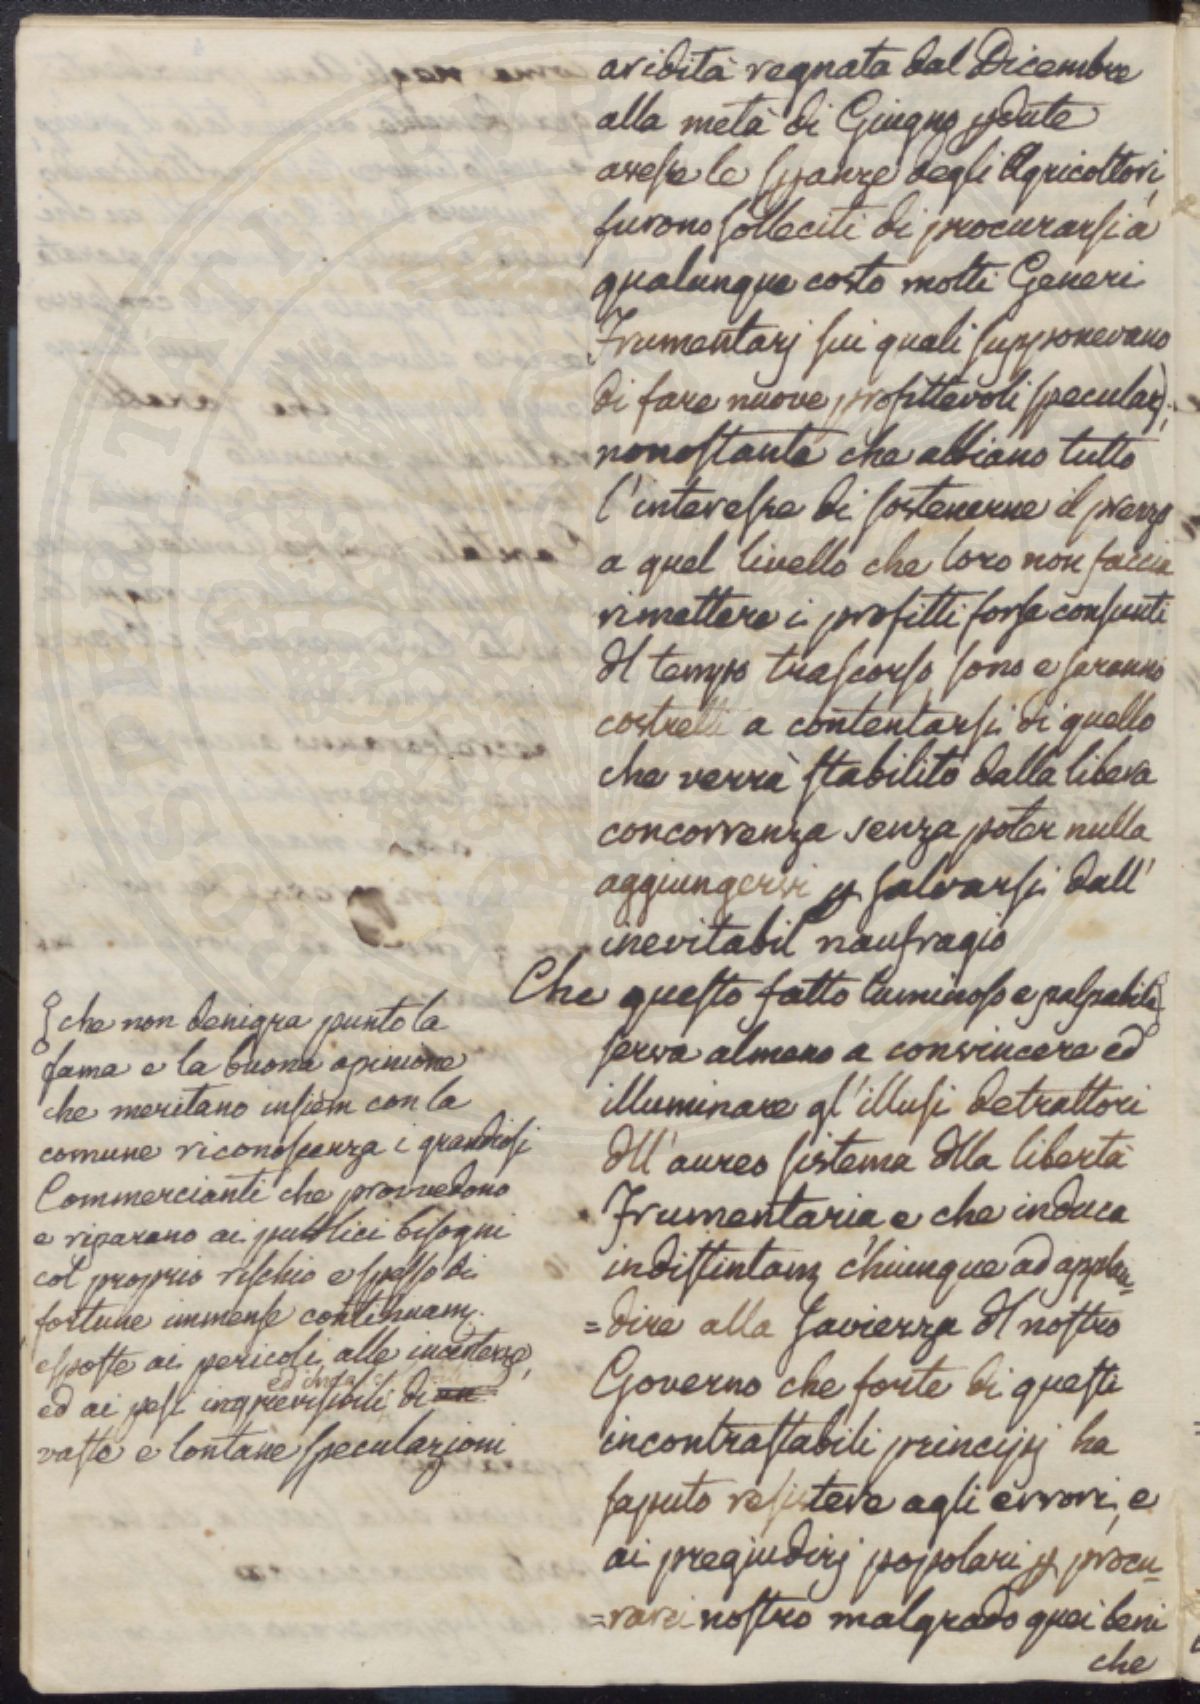 aridità regnata dal Dicembre
alla metà di Giugno pdute
avesse le spanze degli Agricoltori,
furono solleciti di procurarsi a
qualunque costo molti Generi
Frumentarj sui quali supponevano
di fare nuove profittevoli speculaz;
nonostante che abbiano tutto
l'interesse di sostenerne il prezzo
a quel livello che loro non faccia
rimettere i profitti forse consunti
dl tempo trascorso, sono e saranno
costretti a contentarsi di quello
che verrà stabilito dalla libera
concorrenza senza poter nulla
aggiungersi p salvarsi dall'
inevitabil naufragio
Che questo fatto luminoso e palpabile
serva almeno a convincere ed
illuminare gl'illusi detrattori
dll'aureo sistema dlla libertà
Frumentaria e che induca
indistintam chiunque ad applau=
=dire alla saviezza dl nostro
Governo che forte di questi
incontrastabili principj ha
saputo resistere agli errori, e
ai pregiudizj popolari p procu=
=rarci nostro malgrado quei beni
che
che non denigra punto la
fama e la buona opinione
che meritano insiem con la
comune riconoscenza i grandiosi
Commercianti che provvedono
e riparano ai pubblici bisogni
col proprio rischio e spesso di
fortune immense continuam.
esposte ai pericoli, alle incertezze,
ed ai pesi imprevisibili di
vaste e lontane speculazioni